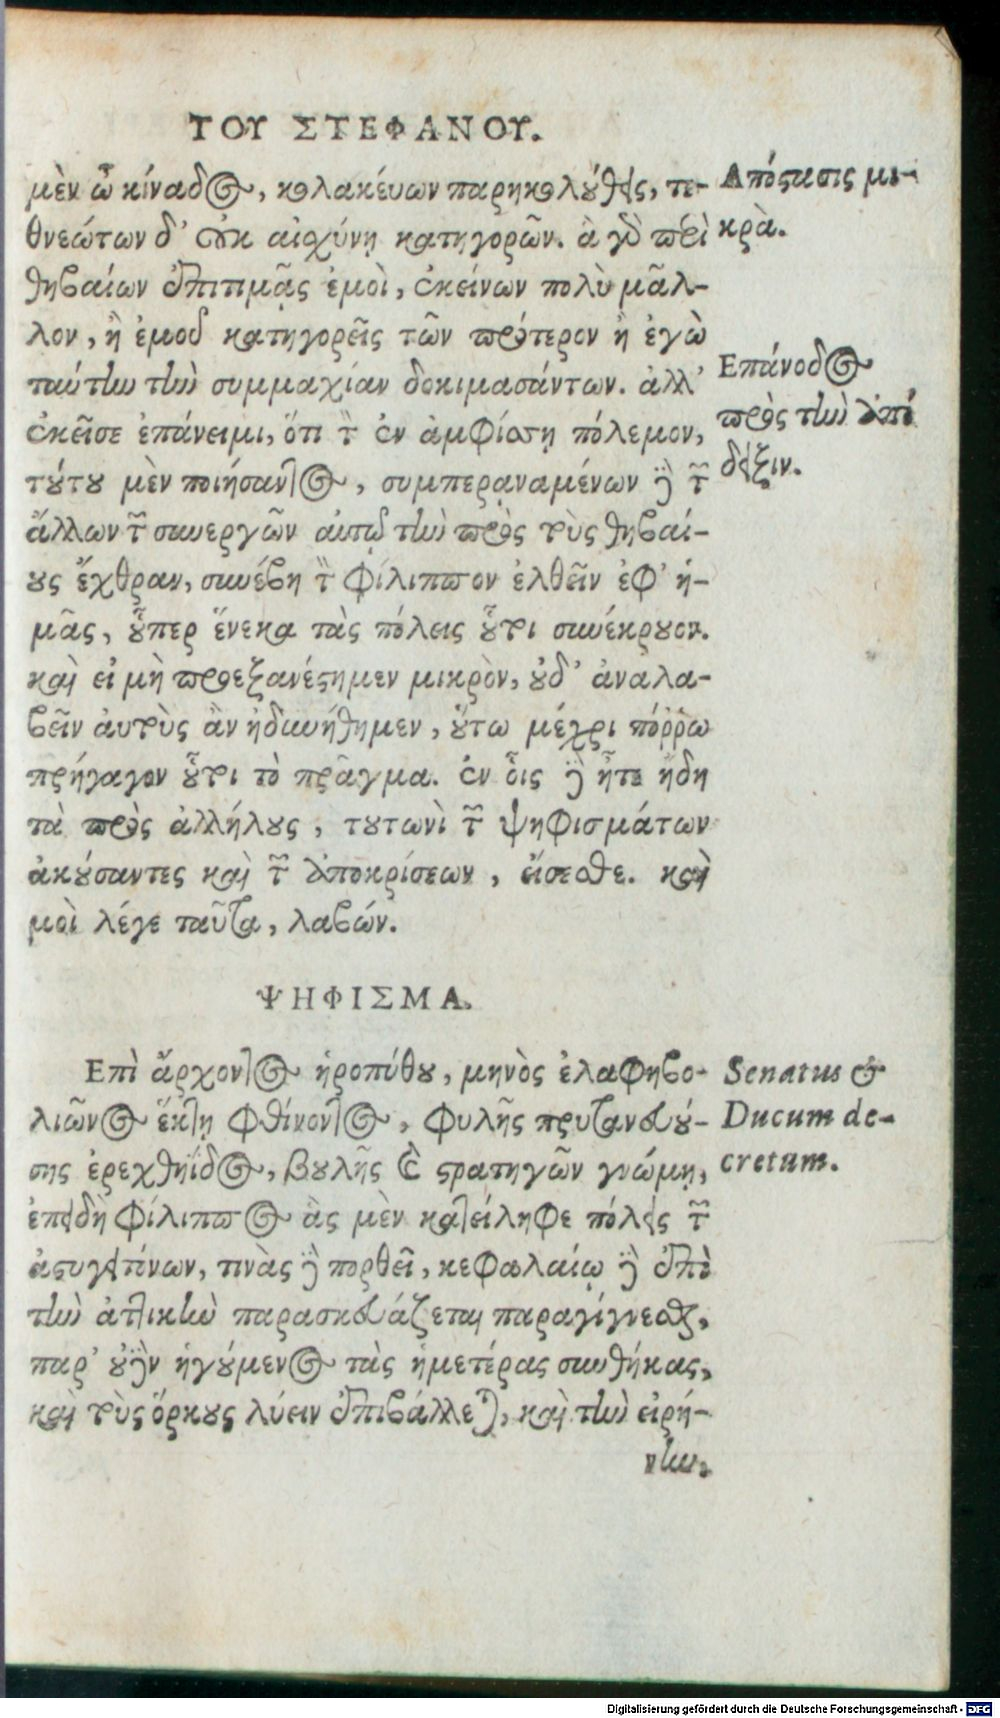 ΤΟΥ ΣΤΕΦΑΝΟΥ.
μὲν ὦ κίναδος, κολακεύων παρηκολούθεις, τε-
θνεώτων δ' οὐκ αἰσχύνῃ κατηγορῶν. ἃ γὸ περὶ
θηβαίων ἐπιτιμᾷς ἐμοὶ, ἐκείνων πολὺ μᾶλ-
λον, ἢ ἐμοῦ κατηγορεῖς τῶν πρότερον ἢ ἐγὼ
ταύτην τὴν συμμαχίαν δοκιμασάντων. ἀλλ'
ἐκεῖσε ἐπάνειμι, ὅτι τὸν ἐν ἀμφίσσῃ πόλεμον,
τούτου μὲν ποιήσαντος, συμπεραναμένων δὲ τῶν
ἄλλων τῶν συνεργῶν αὐτῷ τὴν πρὸς τοὺς θηβαί-
ους ἔχθραν, συνέβη τὸν Φίλιππον ἐλθεῖν ἐφ' ἡ-
μᾶς, οὗπερ ἕνεκα τὰς πόλεις οὗτοι συνέκρουον.
καὶ εἰ μὴ προεξανέστημεν μικρὸν, οὐδ' ἀναλα-
βεῖν αὑτοὺς ἂν ἠδυνήθημεν, οὕτω μέχρι πόῤῥω
προήγαγον οὗτοι τὸ πρᾶγμα. ἐν οἷς δὲ ἦτε ἤδη
τὰ πρὸς ἀλλήλους, τουτωνὶ τῶν ψηφισμάτων
ἀκούσαντες καὶ τῶν ἀποκρίσεων, εἴσεσθε. καὶ
μοὶ λέγε ταῦτα, λαβών.
ΨΗΦΙΣΜΑ.
Επὶ ἄρχοντος ἡροπύθου, μηνὸς ἐλαφηβο-
λιῶνος ἕκτῃ φθίνοντος, φυλῆς πρυτανευού-
σης ἐρεχθηίδος, βουλῆς καὶ στρατηγῶν γνώμη,
ἐπειδὴ Φίλιππος ἃς μὲν κατείληφε πόλεις τῶν
ἀστυγειτόνων, τινὰς δὲ πορθεῖ, κεφαλαίῳ δὲ ἐπὶ
τὴν ἀττικὴν παρασκευάζεται παραγίγνεσθαι,
παρ' οὐδὲν ἡγούμενος τὰς ἡμετέρας συνθήκας,
καὶ τοὺς ὅρκους λύειν ἐπιβάλλεται, καὶ τὴν εἰρή-
νην,
Απόστασις μι-
κρὰ.
Επάνοδος
πρὸς τὴν ἀπό
δειξιν.
Senatus &
Ducum de-
cretum.
Digitalisierung gefördert durch die Deutsche Forschungsgemeinschaft - DFG